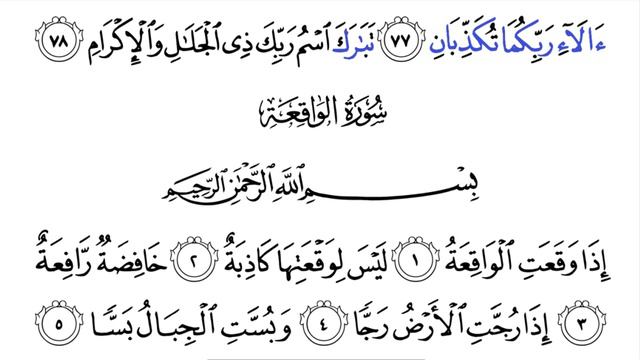 ءَالَآءِ رَبِّكُمَا تُكَذِّبَانِ ٧٧ تَبَٰرَكَ ٱسْمُ رَبِّكَ ذِى ٱلْجَلَٰلِ وَٱلْإِكْرَامِ ٧٨
سُورَةُ الوَاقِعَةِ
بِسْمِ ٱللَّهِ ٱلرَّحْمَٰنِ ٱلرَّحِيمِ
إِذَا وَقَعَتِ ٱلْوَاقِعَةُ ١ لَيْسَ لِوَقْعَتِهَا كَاذِبَةٌ ٢ خَافِضَةٌ رَّافِعَةٌ
٣ إِذَا رُجَّتِ ٱلْأَرْضُ رَجًّا ٤ وَبُسَّتِ ٱلْجِبَالُ بَسًّا ٥